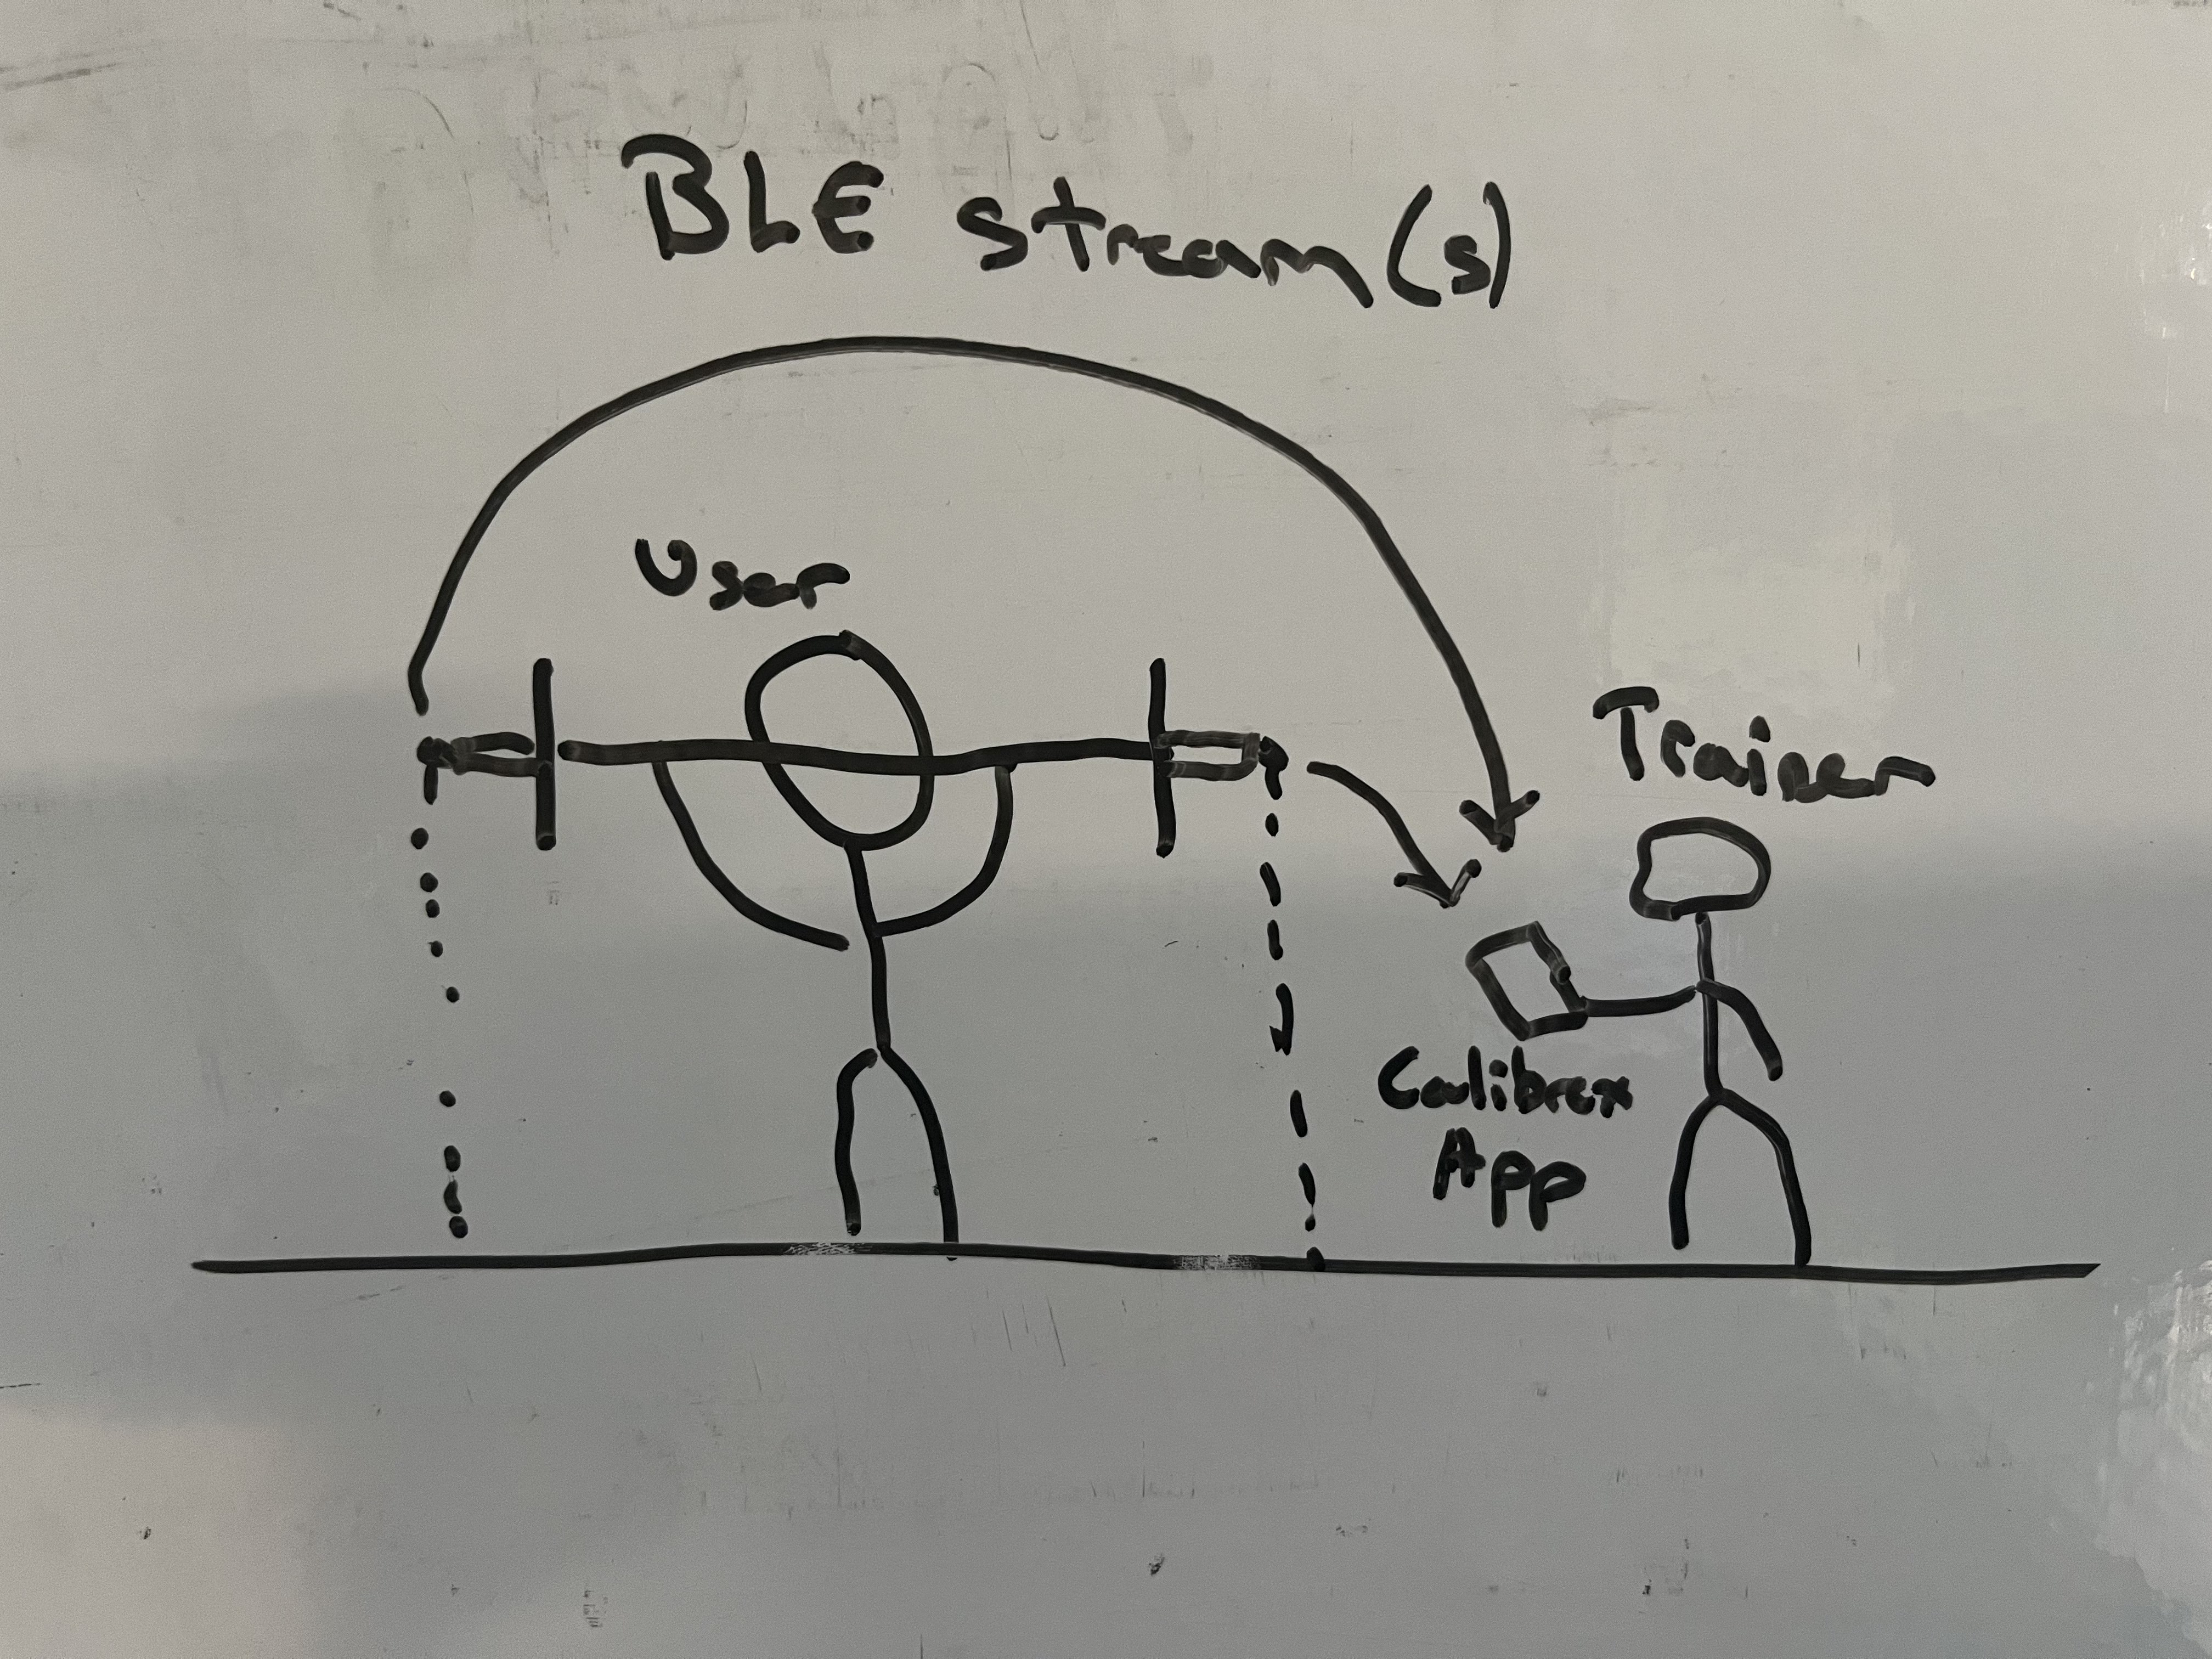 BLE stream(s)
User
Trainer
Calibrex
App